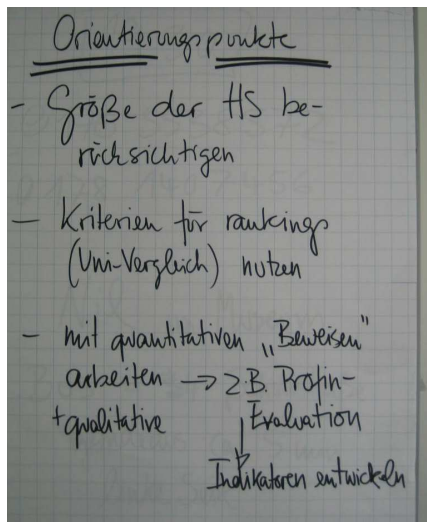 Orientierungspunkte
- Größe der HS be-
rücksichtigen
- Kriterien für rankings
(Uni-Vergleich) nutzen
- mit quantitativen „Beweisen"
arbeiten → z.B. Profin-
+qualitative Evaluation
↓
Indikatoren entwickeln